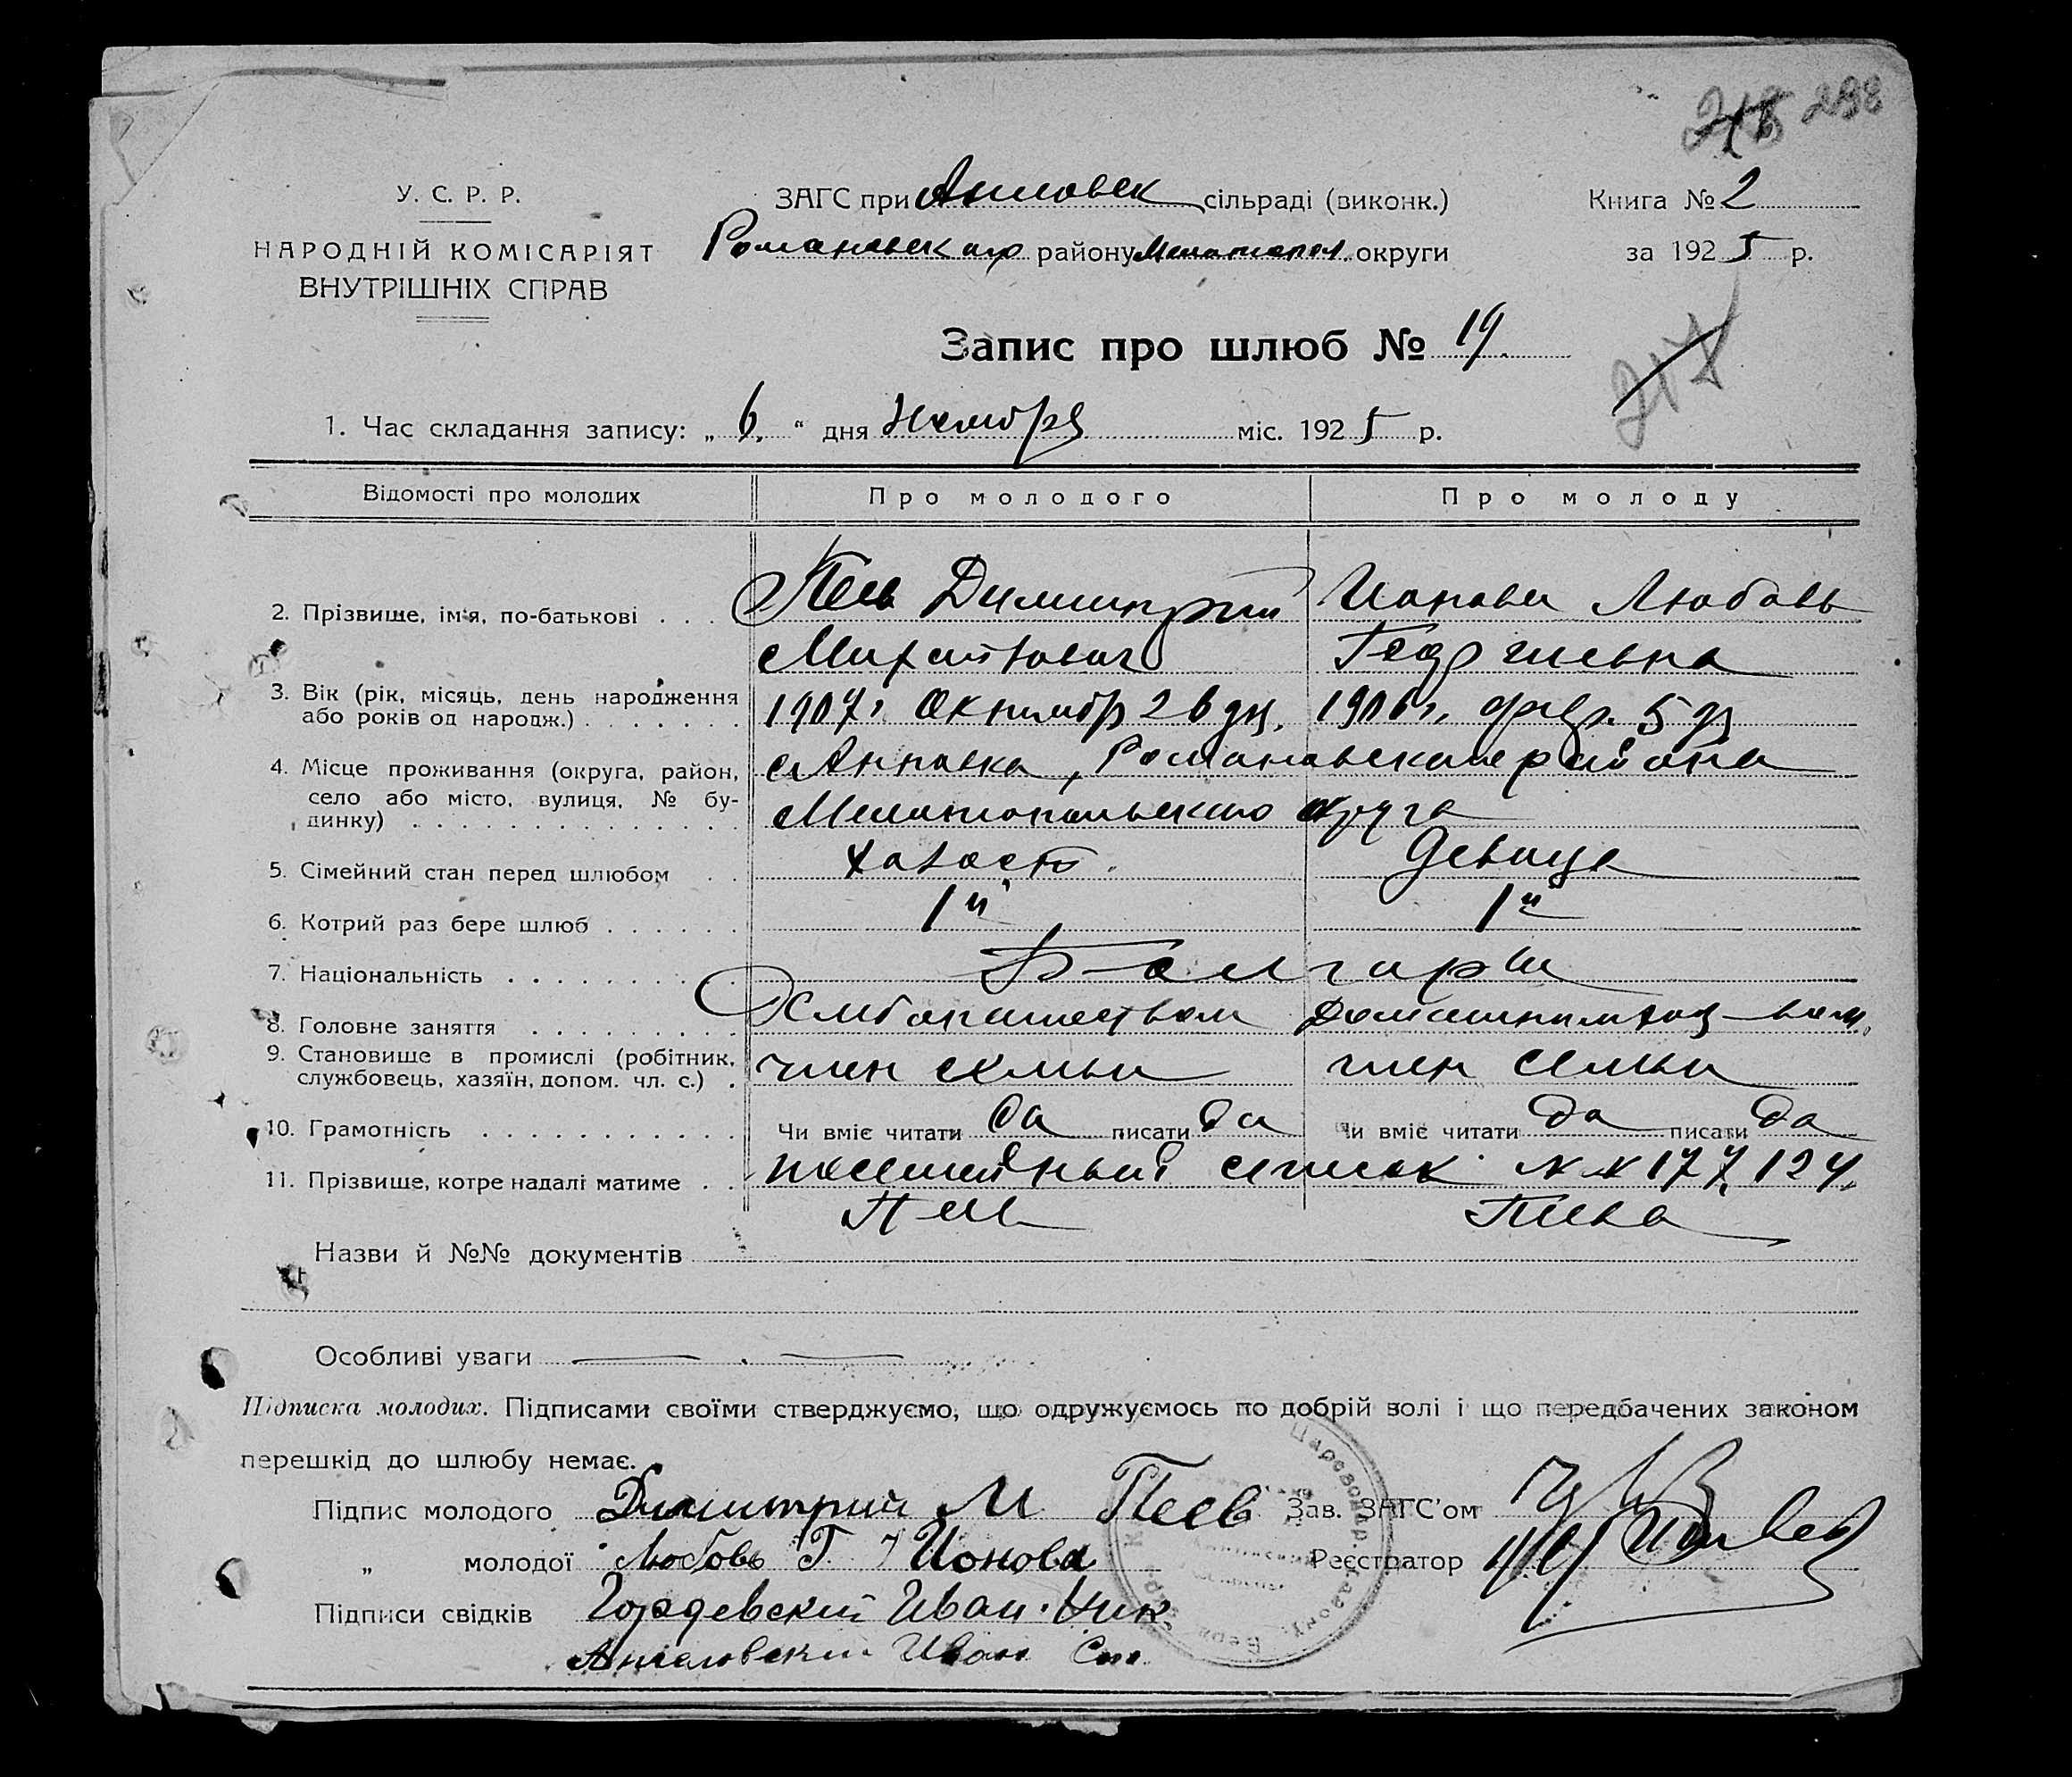 298
У. С. Р. Р.
НАРОДНІЙ КОМІСАРІЯТ
ВНУТРІШНІХ СПРАВ
ЗАГС при Анновск сільраді (виконк.)
Романовского району Мелитопол. округи
Книга № 2
за 1925 р.
Запис про шлюб № 19.
217
1. Час складання запису: „ 6. “ дня Ноября міс. 1925 р.
Відомості про молодих Про молодого Про молоду
2. Прізвище, ім'я, по-батькові . . . Пеев Димитрий Ионова Любовь
Георгиевна
3. Вік (рік, місяць, день народження
або років од народж.) . . . . . . . 1907 г. Октябр 26 дн. 1906 г. февр. 5 д
4. Місце проживання (округа, район, с Анновка, Романовского района
село або місто, вулиця, № бу-
динку) . . . . . . . . . . . . . . Мелитопольского округа
5. Сімейний стан перед шлюбом . . холост. девица
6. Котрий раз бере шлюб . . . . . . 1й 1й
7. Національність . . . . . . . . Болгары
8. Головне заняття . . . . . . . . . Хлебопашеством Домашним хоз-вом.
9. Становище в промислі (робітник,
службовець, хазяїн, допом. чл. с.) . член семьи член семьи
10. Грамотність . . . . . . . . . . . Чи вміє читати да писати да Чи вміє читати да писати да
11. Прізвище, котре надалі матиме . . посемейный список №№ 177, 124.
Пеев Пеева
Назви й №№ документів
Особливі уваги
Підписка молодих. Підписами своїми стверджуємо, що одружуємось по добрій волі і що передбачених законом
перешкід до шлюбу немає.
Підпис молодого Димитрий М Пеев Зав. ЗАГС'ом
„ молодої Любовь Г. Ионова Реєстратор
Підписи свідків Гордевский Иван Ник.
Ангеловский Иван Сте.